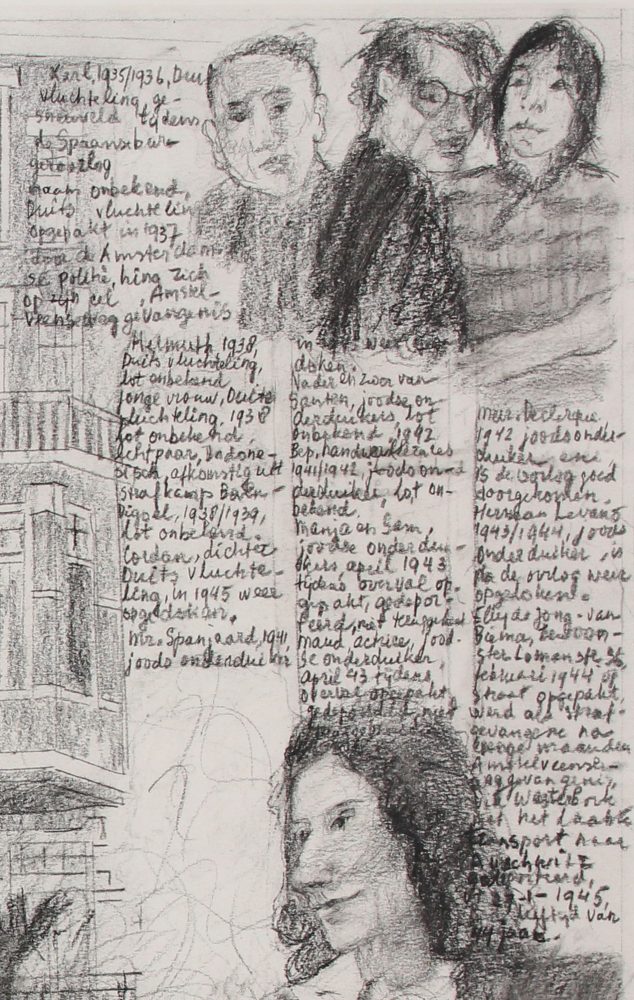 Karl, 1935/1936, Duits
vluchteling ge-
sneuveld tijdens
de Spaansebur-
geroorlog
naam onbekend,
Duits vluchteling
opgepakt in 1937
door de Amsterdam-
se politie, hing zich
op zijn cel, Amstel-
veenseweg gevangenis
Helmuth, 1938,
Duits vluchteling,
lot onbekend
jonge vrouw, Duits
vluchteling, 1938
lot onbekend,
echtpaar, Indone-
sisch, afkomstig uit
strafkamp Boven-
Digoel, 1938/1939,
lot onbekend.
Cordan, dichter
Duits vluchte-
ling, in 1945 weer
opgedoken.
Mr. Spanjaard, 1941,
joods onderduiker
in weer
doken.
Vader en zoon van
Santen, joodse on-
derduikers lot
onbekend, 1942
Bep, handwerklerares
1941/1942, joods on-
derduiker, lot on-
bekend.
Manja en Sam,
joodse onderdui-
kers, april 1943
tijdens overval op-
gepakt, gedepor-
teerd, niet teruggekeerd
Maud, actrice, jood-
se onderduiker,
april 43 tijdens
overval opgepakt
gedeporteerd, niet
mevr. Declerque
1942 joods onder-
duiker en
is de oorlog goed
doorgekomen.
Herman
1943/1944, joods
onderduiker, is
na de oorlog weer
opgedoken.
Elly de Jong-van
Biema,
februari 1944 op
straat opgepakt,
werd als straf-
gevangene na
lange maanden
Amstelveense-
weg gevangenis,
via Westerbork
met het laatste
transport naar
Auschwitz
1945
leeftijd van
44 jaar.